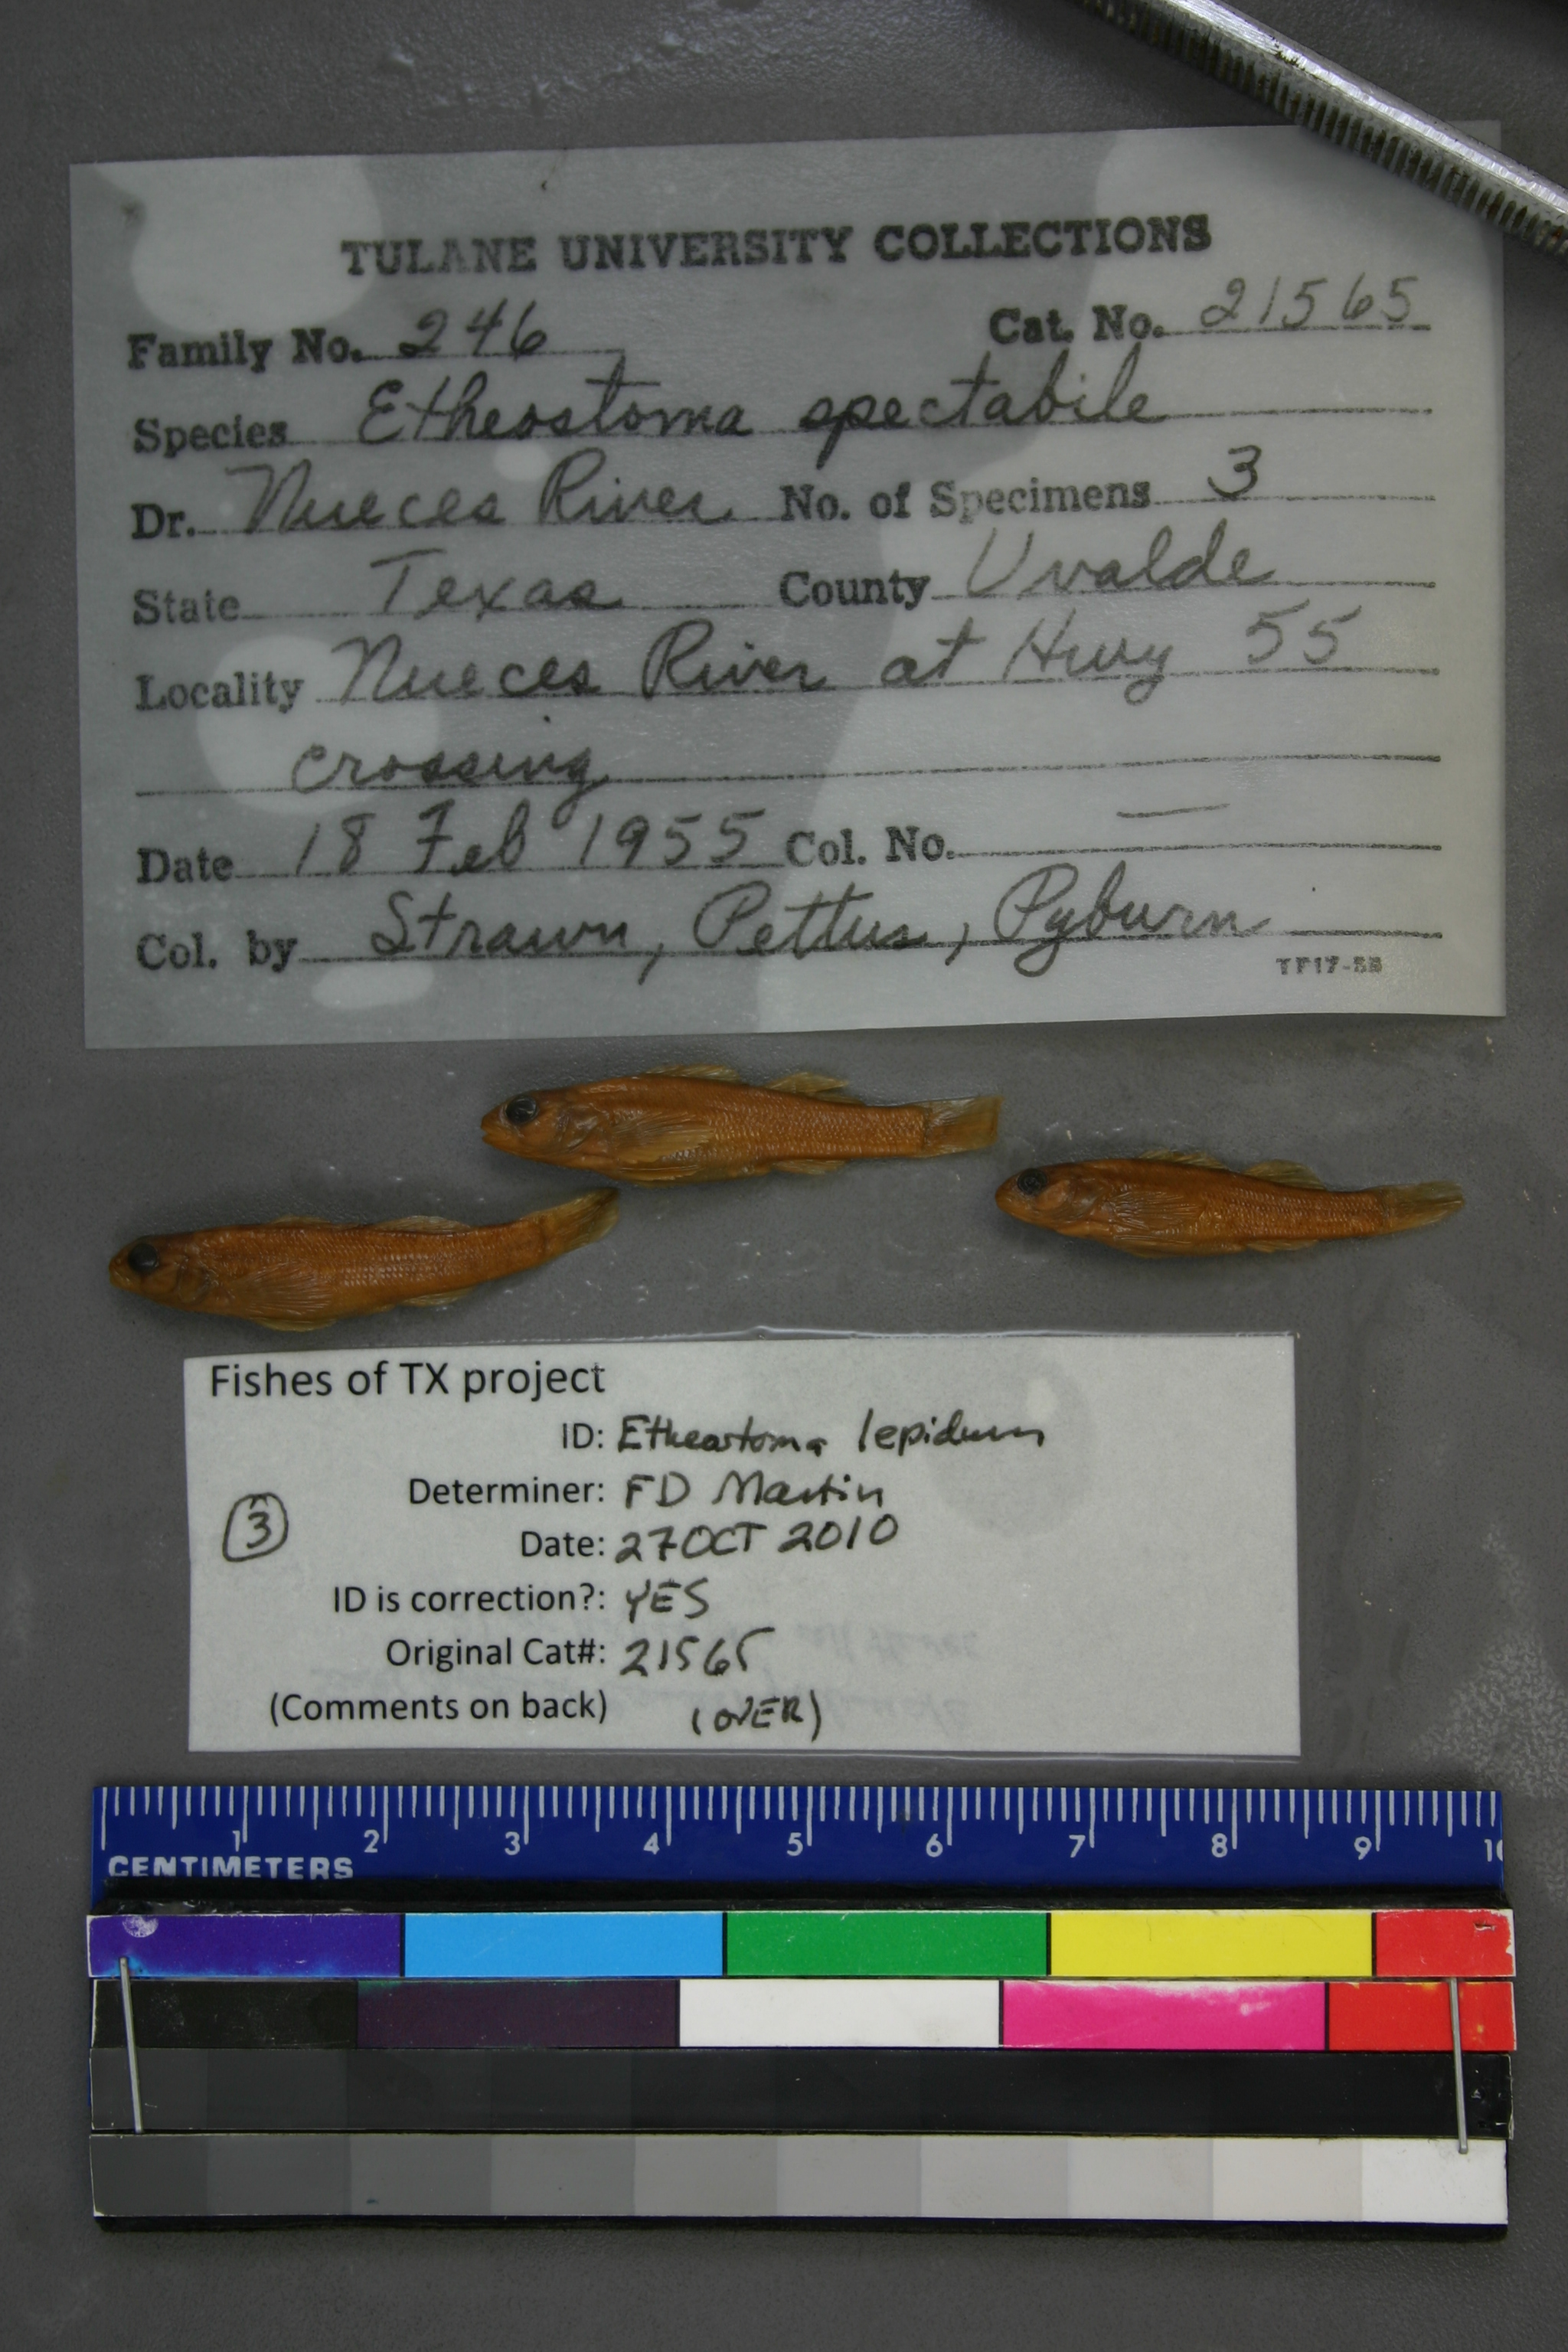 TULANE UNIVERSITY COLLECTIONS
Family No. 246 Cat. No. 21565
Species Etheostoma spectabile
Dr. Nueces River No. of Specimens 3
State Texas County Uvalde
Locality Nueces River at Hwy 55
crossing
Date 18 Feb 1955 Col. No. —
Col. by Strawn, Pettus, Pyburn
TF17-55
Fishes of TX project
ID: Etheostoma lepidum
Determiner: FD Martin
3
Date: 27 OCT 2010
ID is correction?: YES
Original Cat#: 21565
(Comments on back) (OVER)
1 2 3 4 5 6 7 8 9 10
CENTIMETERS